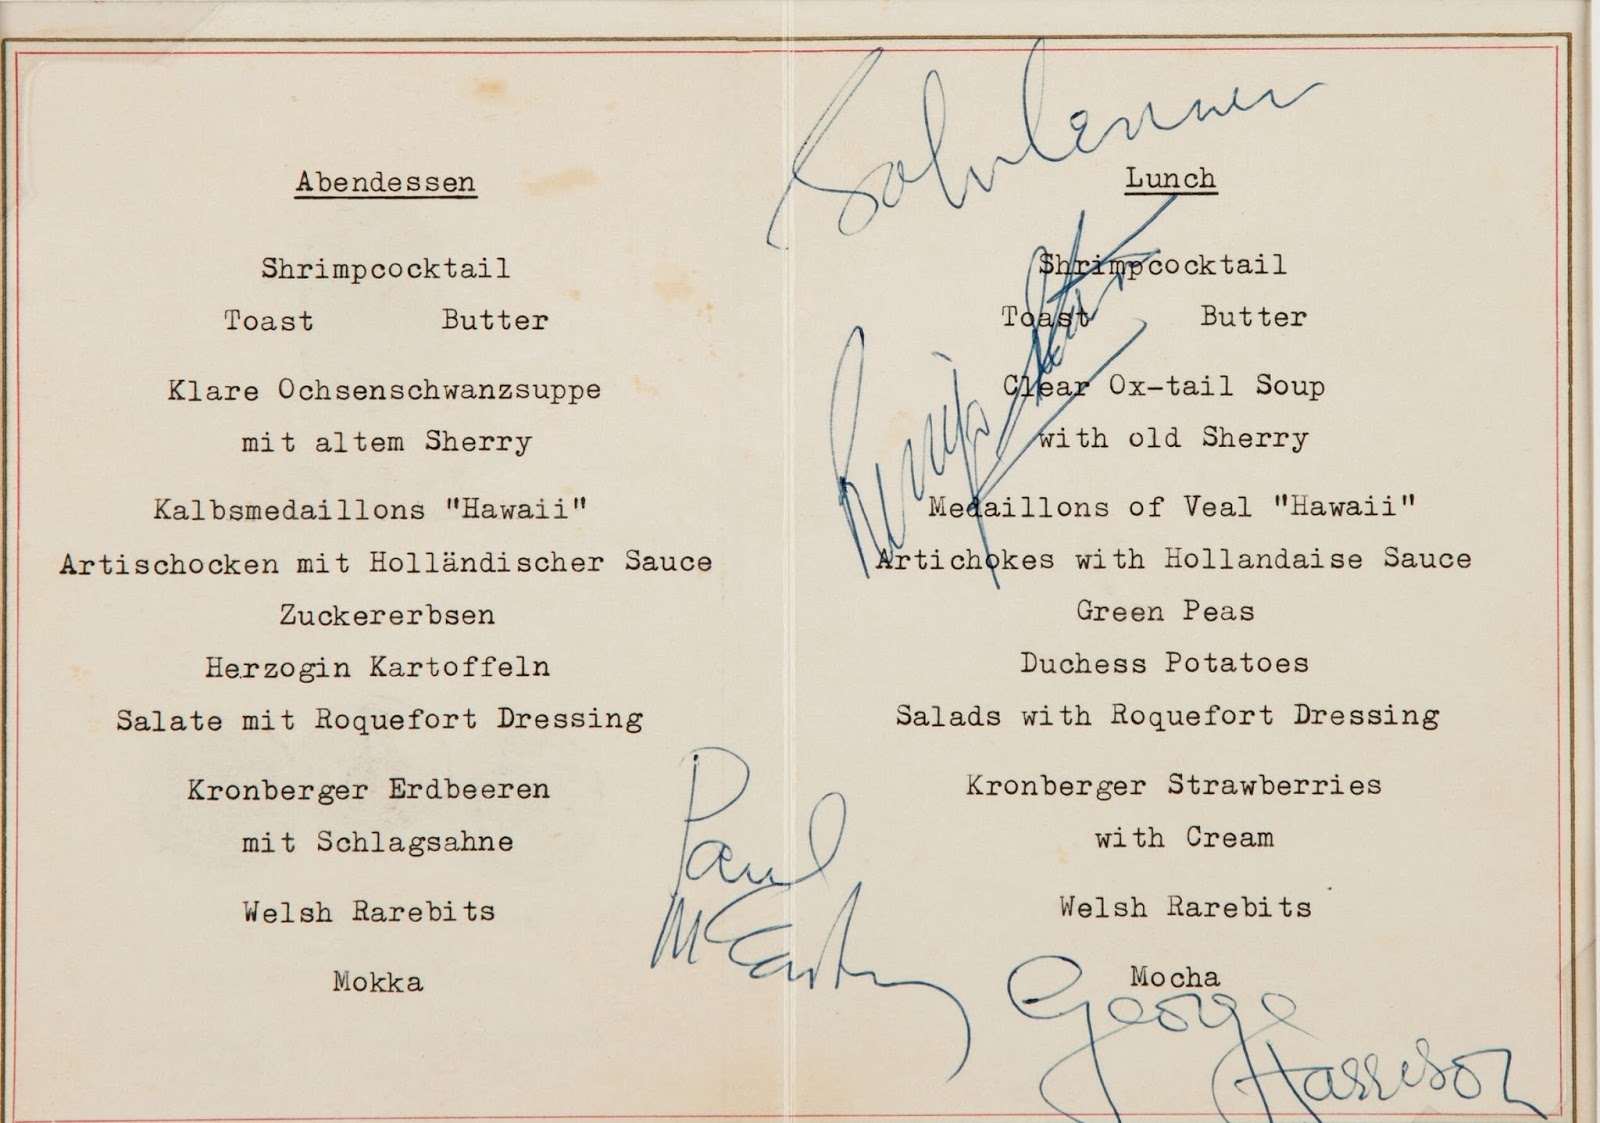 Abendessen
Shrimpcocktail
Toast Butter
Klare Ochsenschwanzsuppe
mit altem Sherry
Kalbsmedaillons "Hawaii"
Artischocken mit Holländischer Sauce
Zuckererbsen
Herzogin Kartoffeln
Salate mit Roquefort Dressing
Kronberger Erdbeeren
mit Schlagsahne
Welsh Rarebits
Mokka
John Lennon
Lunch
Shrimpcocktail
Toast Butter
Clear Ox-tail Soup
with old Sherry
Medaillons of Veal "Hawaii"
Artichokes with Hollandaise Sauce
Green Peas
Duchess Potatoes
Salads with Roquefort Dressing
Kronberger Strawberries
with Cream
Welsh Rarebits
Mocha
Ringo Starr
Paul
McCartney
George
Harrison